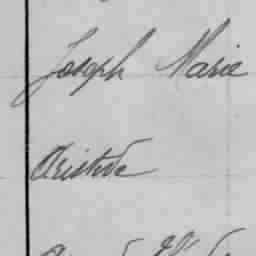 Joseph Marie
Aristide